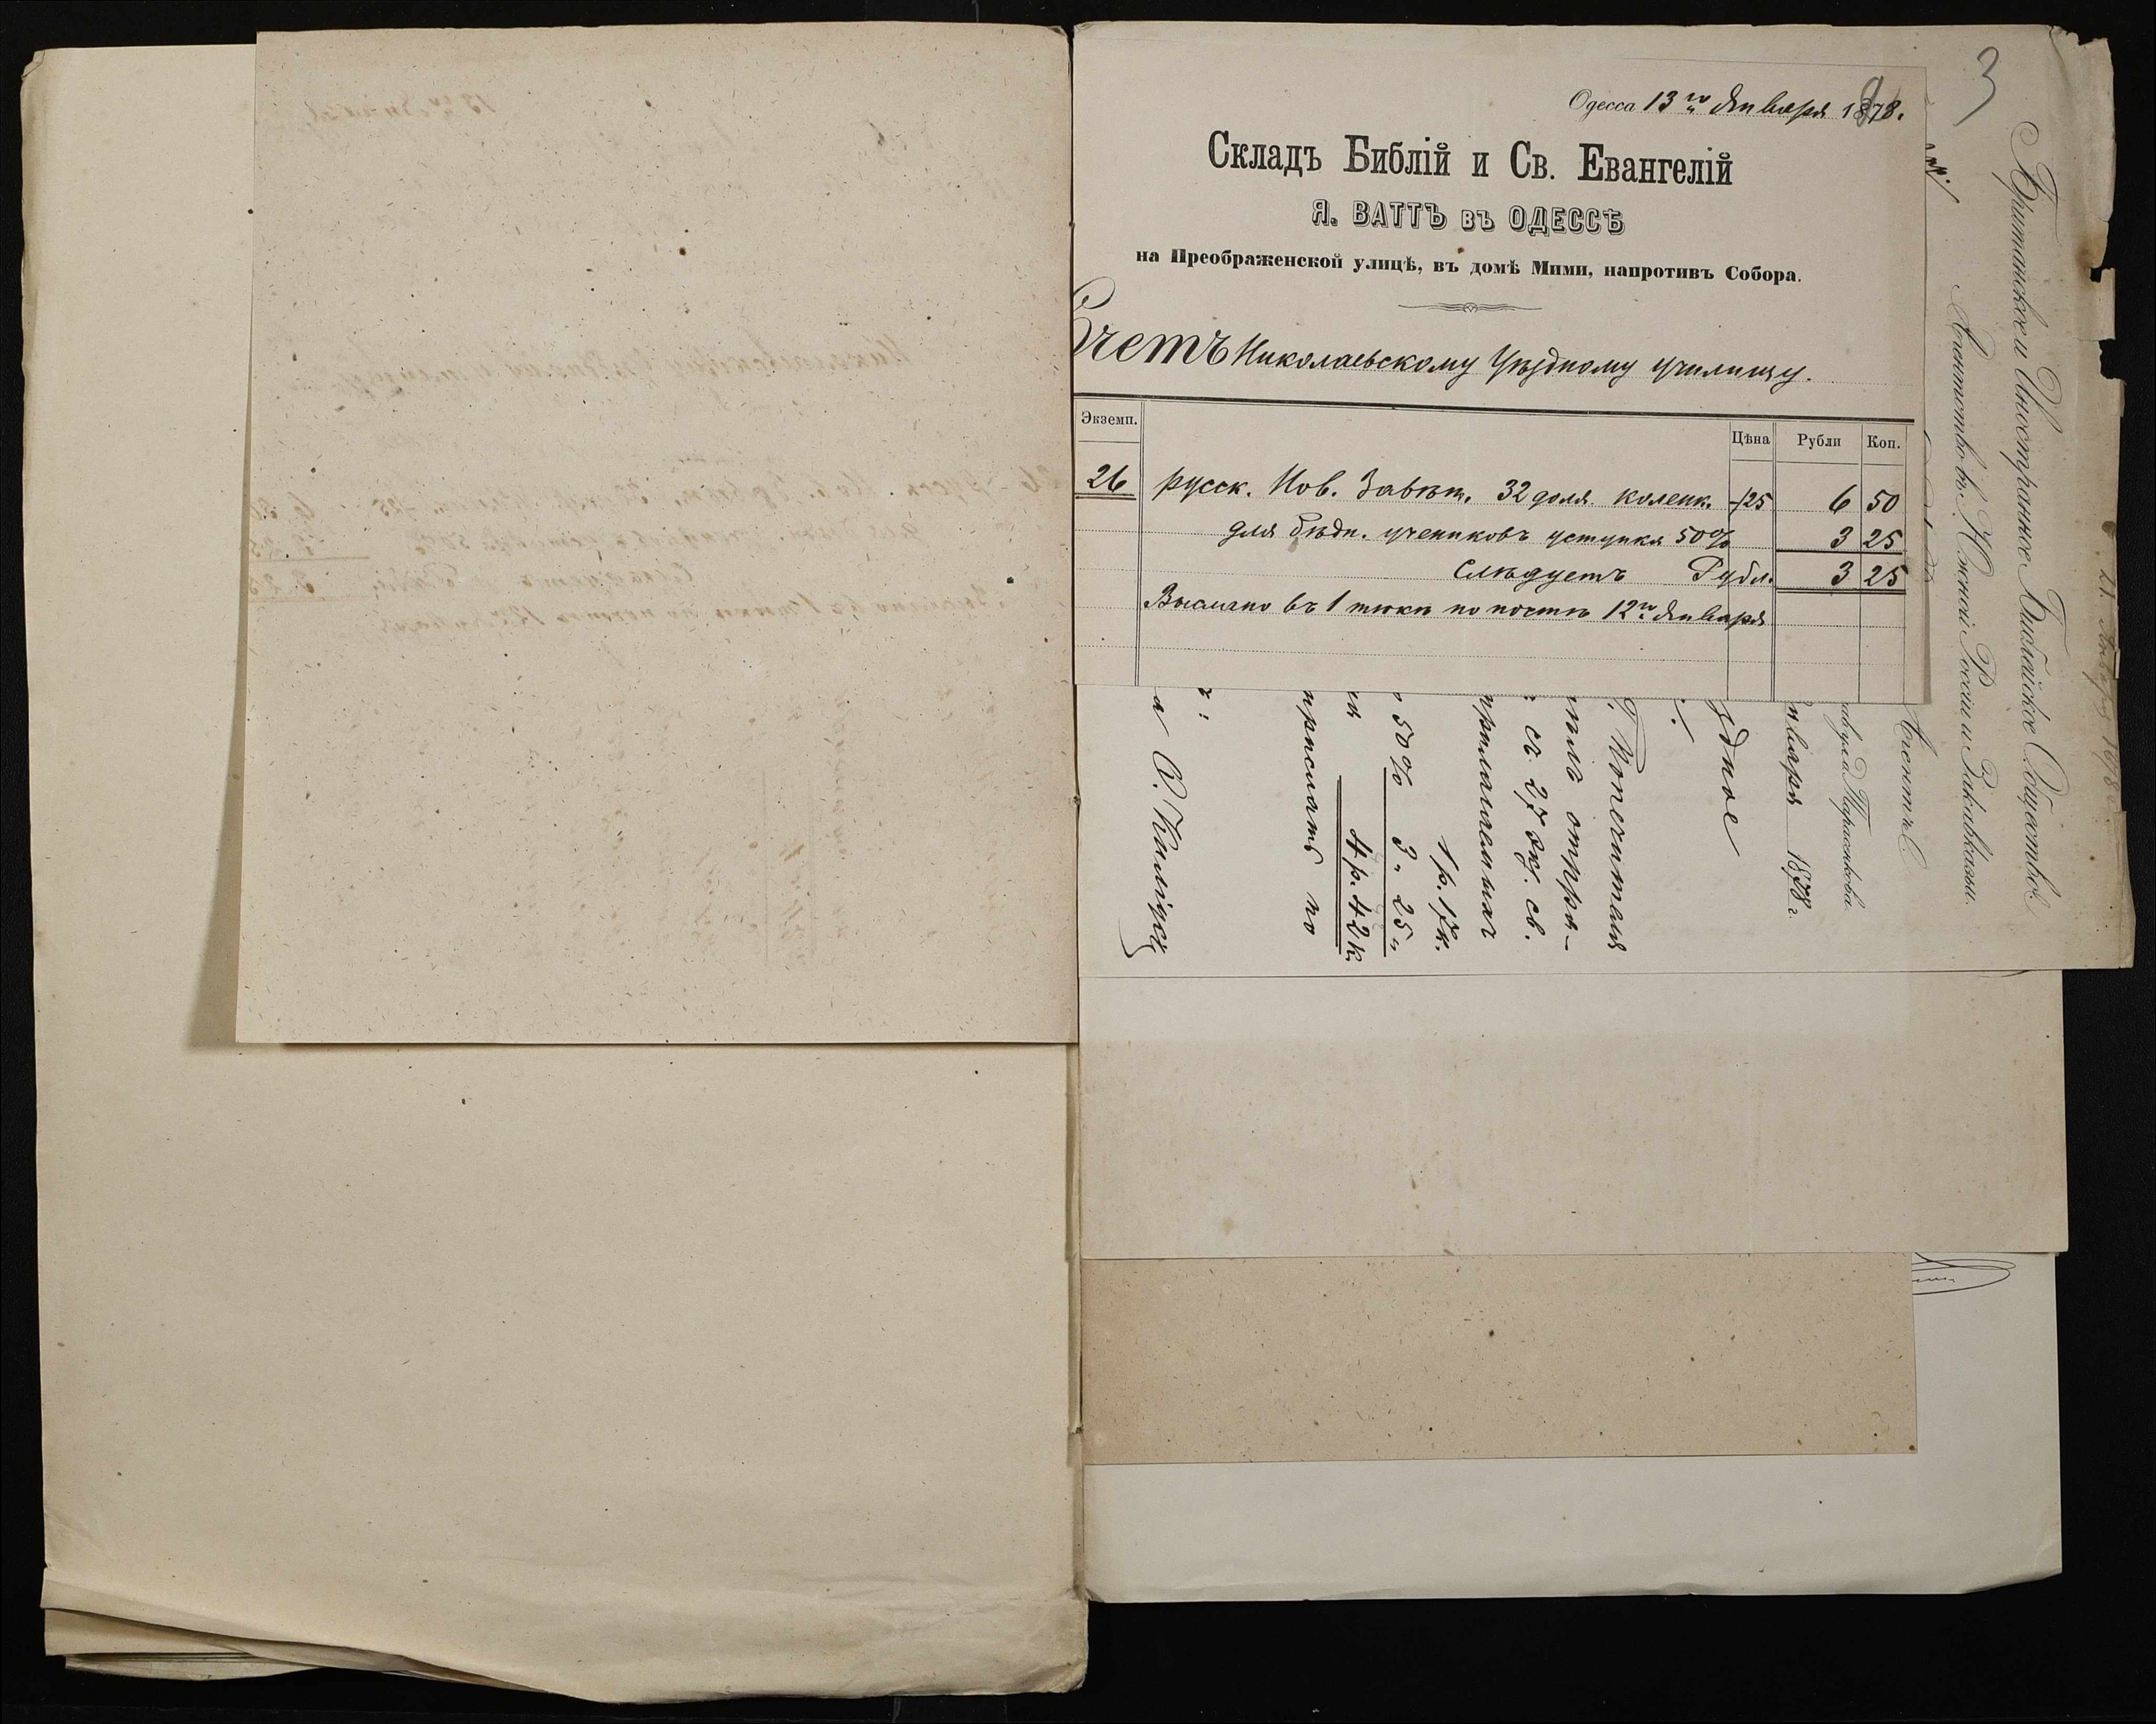 3
Одесса 13го Января 1878.
Складъ Библій и Св. Евангелій
Я. ВАТТЪ въ ОДЕССѢ
на Преображенской улицѣ, въ домѣ Мими, напротивъ Собора.
Счетъ Николаевскому Уѣздному училищу.
Экземп. Цѣна Рубли Коп.
26 русск. Нов. Завѣт. 32 доля коленк. -/25 6 50
для бѣдн. учениковъ уступка 50% 3 25
Слѣдуетъ Рубл. 3 25
Выслано въ 1 тюкѣ по почтѣ 12го Января
21 Января 1878
Британское и Иностранное Библейское Общество
Агентство въ Южной Россіи и Закавказьи.
Агентъ
Тарасенкова.
нваря 1878 г.
здное
Г. Попечителя
отпра-
съ 27 экз. св.
прилагаемыхъ
1 р. 17 к.
50% 3 „ 25 „
4 р. 42 к.
прислать по